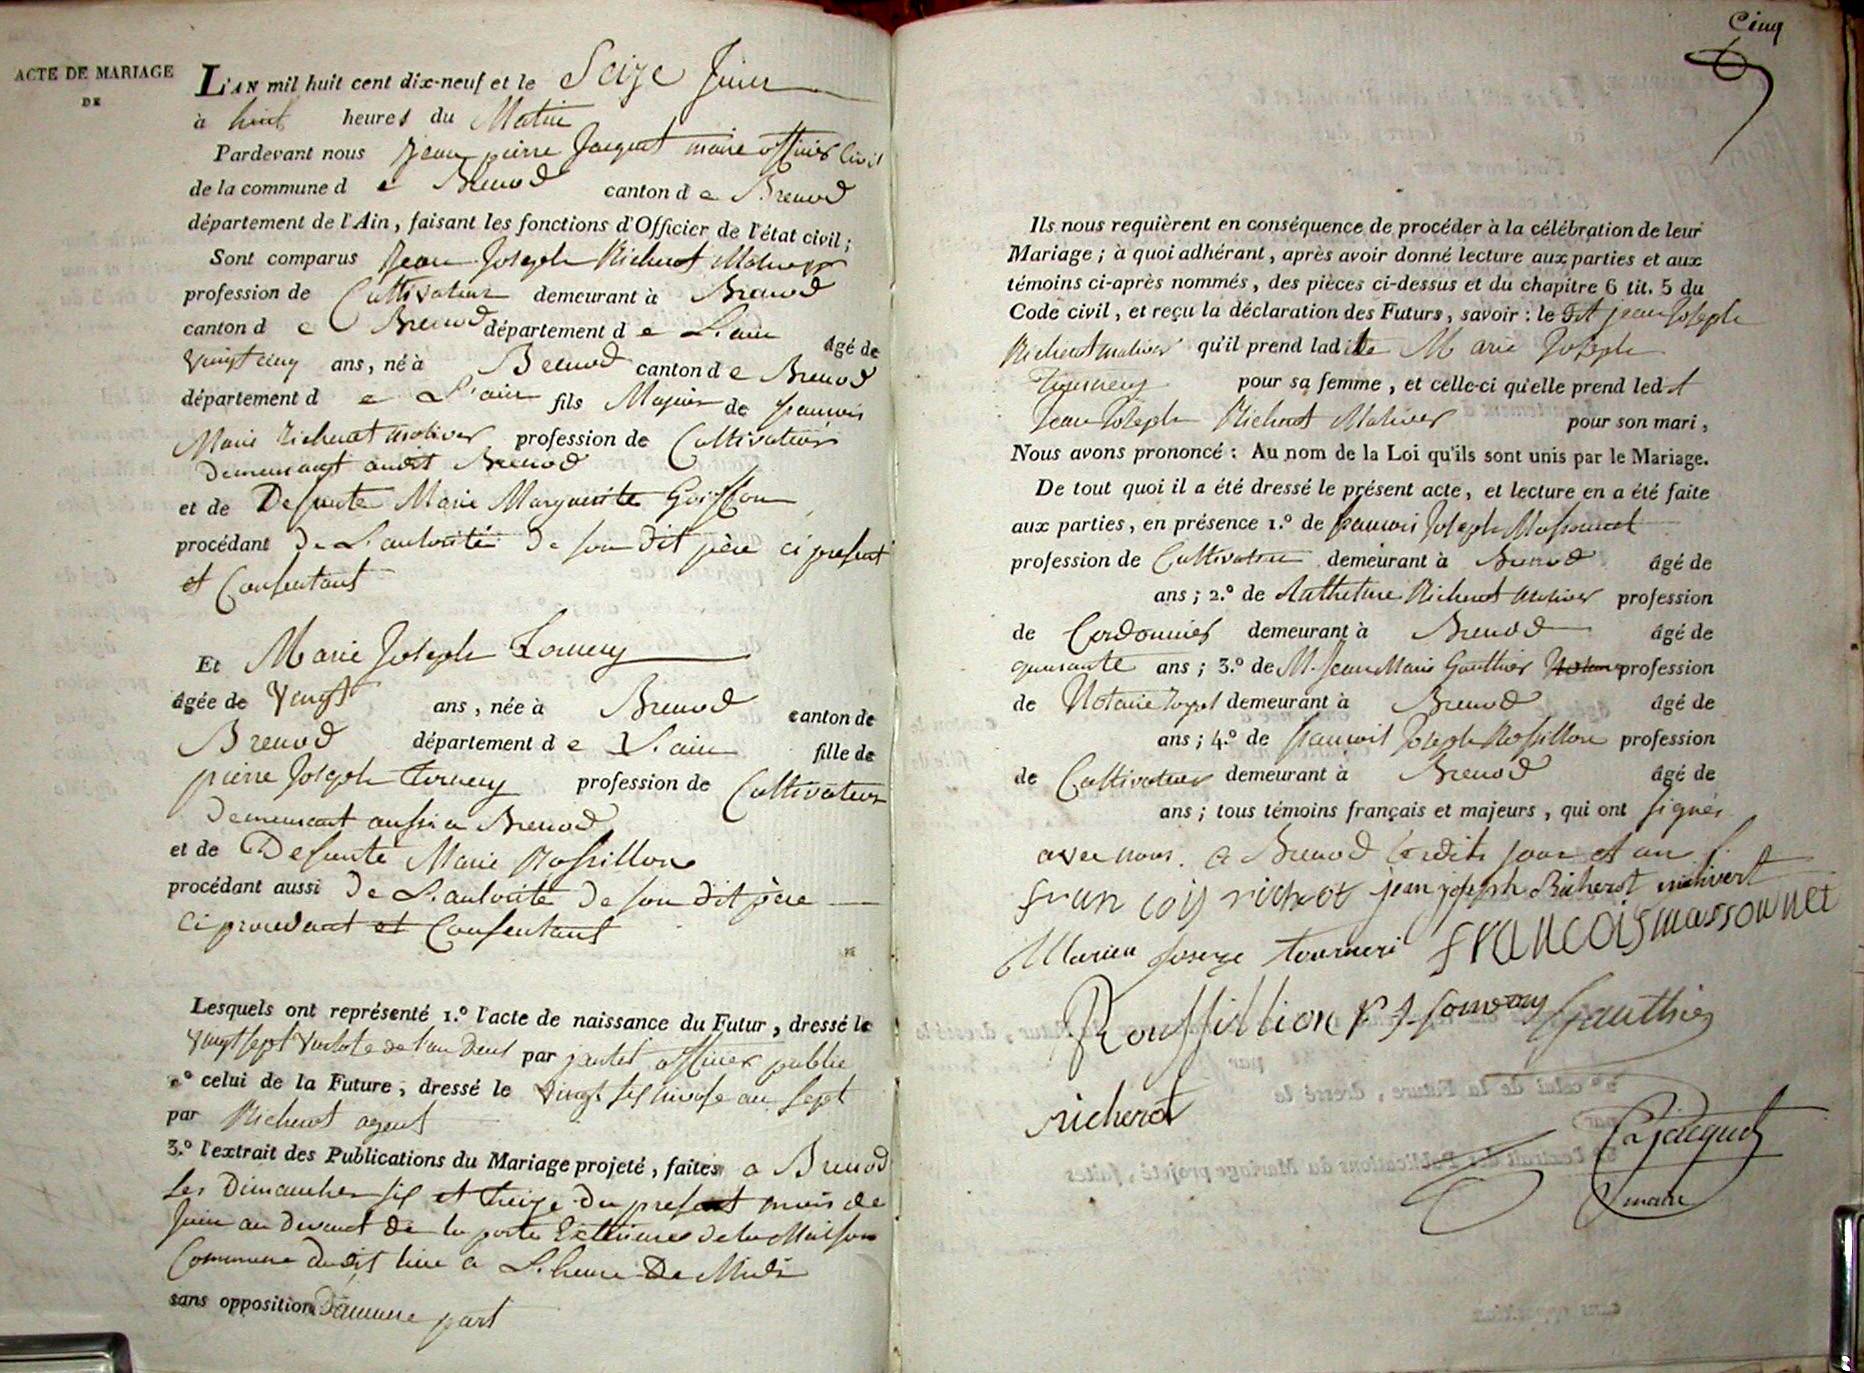 ACTE DE MARIAGE
DE
L'AN mil huit cent dix-neuf et le Seize Juin
à huit heures du Matin
Pardevant nous Jean pierre Jacquet maire officier Civil
de la commune d e Brenod canton d e Brenod
département de l'Ain, faisant les fonctions d'Officier de l'état civil;
Sont comparus Jean Joseph Richerot Molliver
profession de Cultivateur demeurant à Brenod
canton d e Brenod département d e L'ain âgé de
vingt cinq ans, né à Brenod canton d e Brenod
département d e L'ain fils Majeur de françois
Marie Richerot moliver profession de Cultivateur
Demeurant audit Brenod
et de Defunte Marie Marguerite Goiffon
procédant De L'autorité De son dit père ci present
et Consentant
Et Marie Joseph Tornery
âgée de Vingt ans, née à Brenod canton de
Brenod département d e L'ain fille de
pierre Joseph tornery profession de Cultivateur
Demeurant aussi a Brenod
et de Defunte Marie Rossillon
procédant aussi De L'autorité De son dit père
Ci present et Consentant
Lesquels ont représenté 1.º l'acte de naissance du Futur, dressé le
Vingt sept Ventose de l'an Deux par jantet officier public
2.º celui de la Future, dressé le vingt six nivose an sept
par Richerot agent
3.º l'extrait des Publications du Mariage projeté, faites a Brenod
Les Dimanches six et treize Du present mois de
Juin au devant de la porte Exterieure de la Maison
Commune dudit lieu a L'heure De Midi
sans opposition D'aucune part
Cinq
Ils nous requièrent en conséquence de procéder à la célébration de leur
Mariage; à quoi adhérant, après avoir donné lecture aux parties et aux
témoins ci-après nommés, des pièces ci-dessus et du chapitre 6 tit. 5 du
Code civil, et reçu la déclaration des Futurs, savoir: le dit jean Joseph
Richerot moliver qu'il prend ladite Marie Joseph
Tournery pour sa femme, et celle-ci qu'elle prend led t
Jean Joseph Richerot Moliver pour son mari,
Nous avons prononcé: Au nom de la Loi qu'ils sont unis par le Mariage.
De tout quoi il a été dressé le présent acte, et lecture en a été faite
aux parties, en présence 1.º de francois Joseph Massonnet
profession de Cultivateur demeurant à Brenod âgé de
ans; 2.º de Richerot moliver profession
de Cordonnier demeurant à Brenod âgé de
quarante ans; 3.º de M. Jean Marie Gauthier Notaire profession
de Notaire royal demeurant à Brenod âgé de
ans; 4.º de francois Joseph Rossillon profession
de Cultivateur demeurant à Brenod âgé de
ans; tous témoins français et majeurs, qui ont signés
avec nous. a Brenod Lesdits jour et an
francois richerot jean joseph Richerot molivert
Marien Josege tourneri francois massonnet
Roussillion Gauthier
richerot
Jacquet
maire